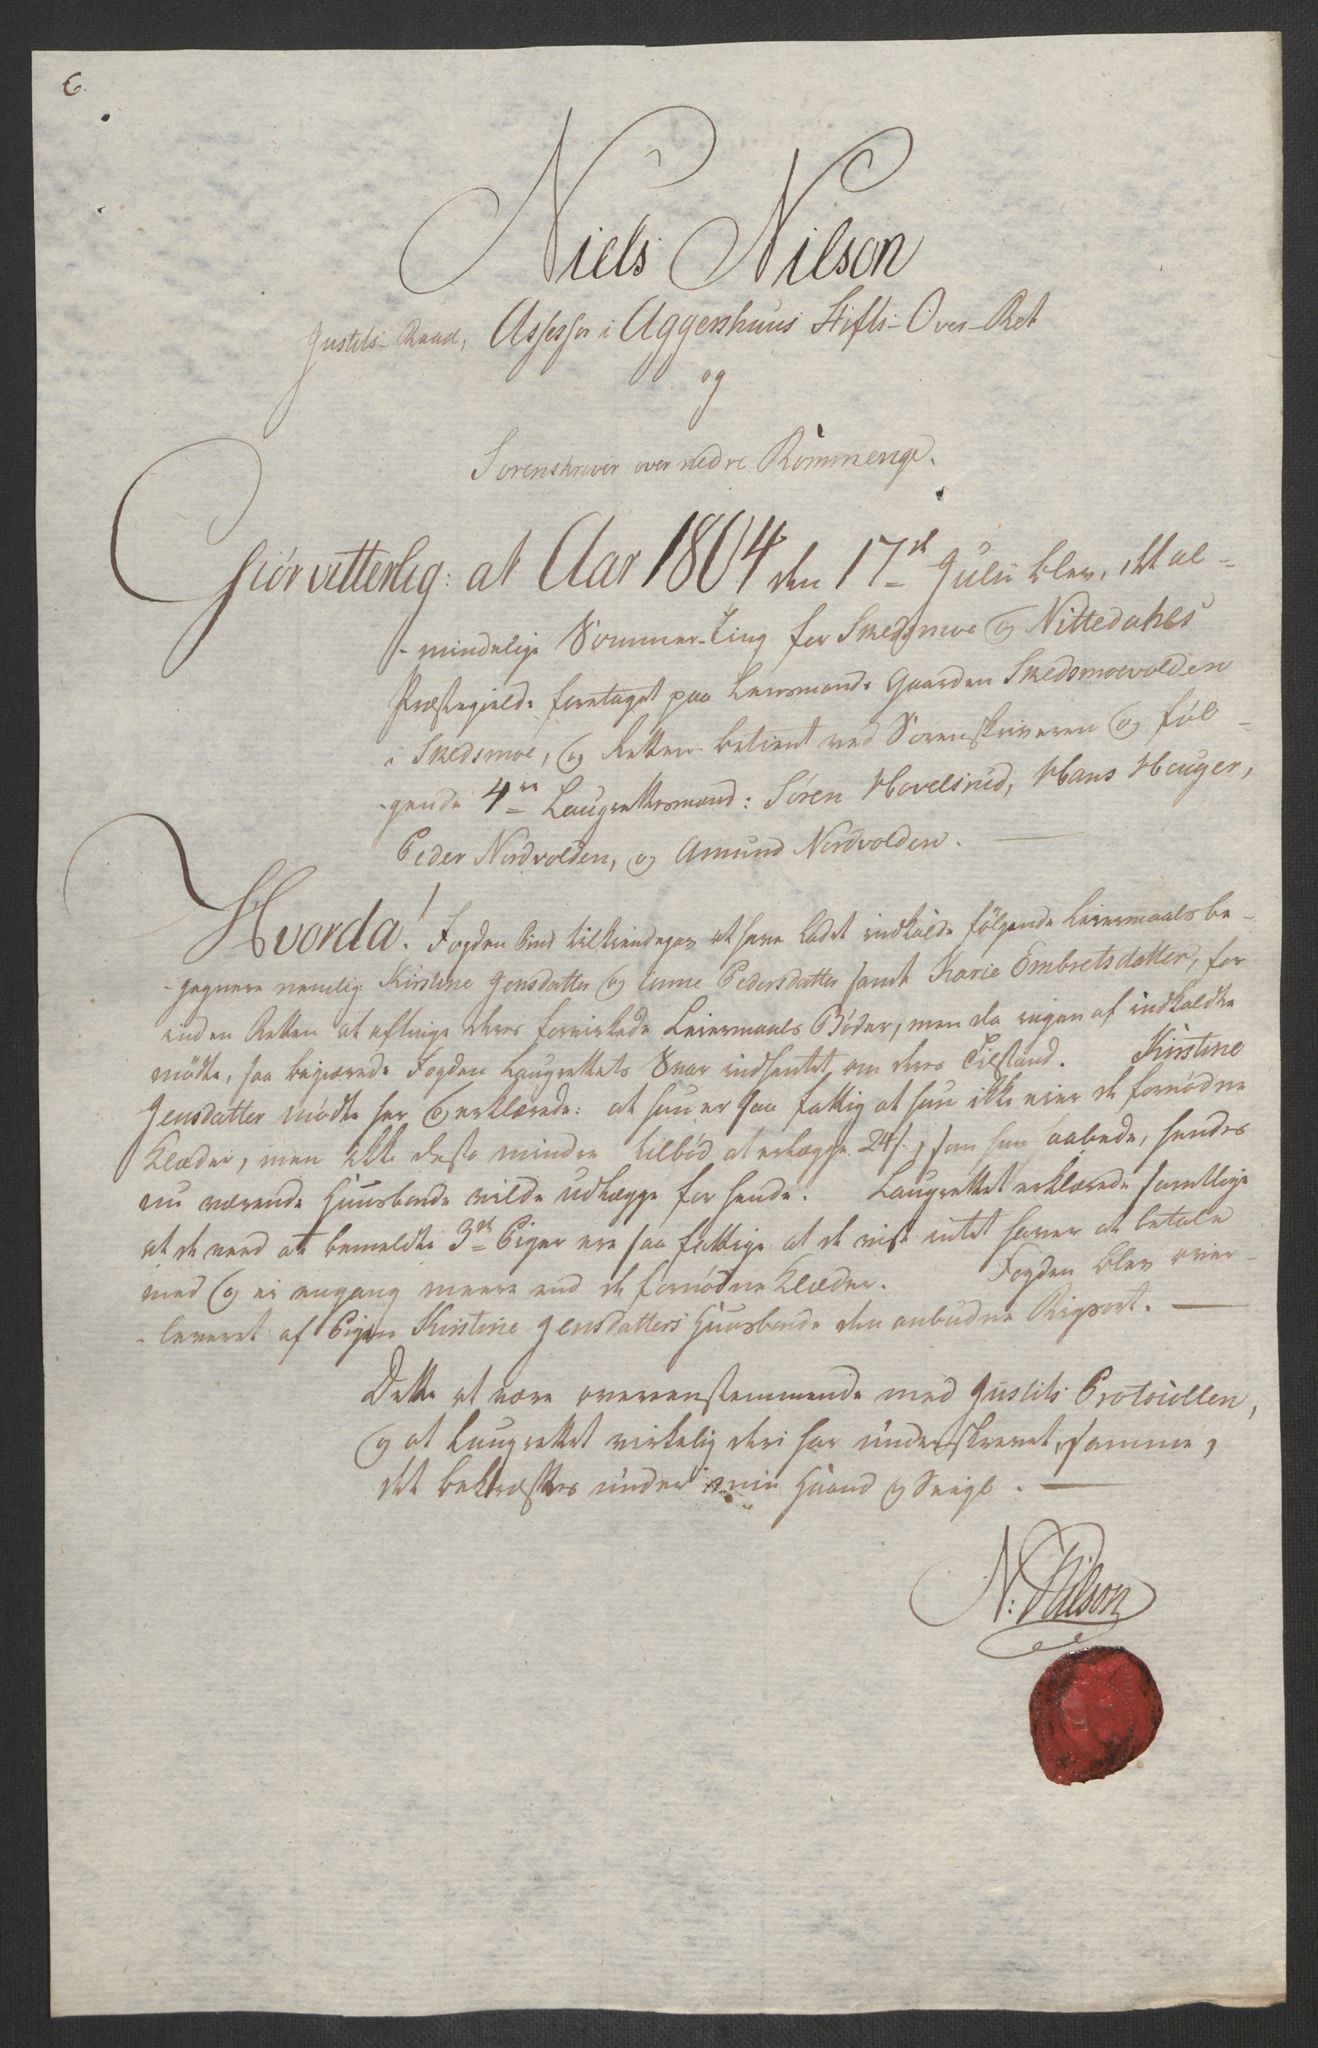 6.
Niels Nilson
Justits-Raad, Assessor i Aggershuus Stifts-Over-Ret
og
Sorenskriver over nedre Rommerige.
Giør vitterlig: at Aar 1804 den 17de Julii blev, et al-
-mindelige Sommer-Ting for Skedsmoe og Nittedahls
Præstegield foretaget paa Lensmands Gaarden Skedsmoevolden
i Skedsmoe, og Retten betient ved Sorenskriveren og føl-
-gende 4re Laugrettesmænd: Søren Hovelsrud, Hans Hauger,
Peder Nordvolden, og Amund Nordvolden.
Hvorda! Fogden Bind tilkiendegav at have ladet indkalde følgende Leiermaalsbe-
-gagnere nemlig Kirstine Jensdatter og Anne Pedersdatter samt Karie Embretsdatter, for
inden Retten at aftinge deres forvirkede Leiermaals Bøder, men da ingen af indkaldte
mødte, saa begiærede Fogden Laugrettets Svar indhentet om deres Tilstand. Kirstine
Jensdatter mødte her og erklærede: at hun er saa fattig at hun ikke eier de fornødne
Klæder, men ikke desto mindre tilbød at erlægge 24 s, som hun haabede, hendes
nu værende Huusbonde vilde udlægge for hende. Laugrettet erklærede samtlige
at de veed at bemeldte 3de Piger ere saa fattige at de vist intet haver at betale
med og ei engang meere end de fornødne Klæder. Fogden blev over-
-leveret af Pigen Kirstine Jensdatters Huusbonde den anbudne Rigsort.
Dette at være overeensstemmende med Justits Protocollen,
og at Laugrettet virkelig deri har underskrevet samme,
det bekræftes under min Haand og Seigl.
N: Nilson